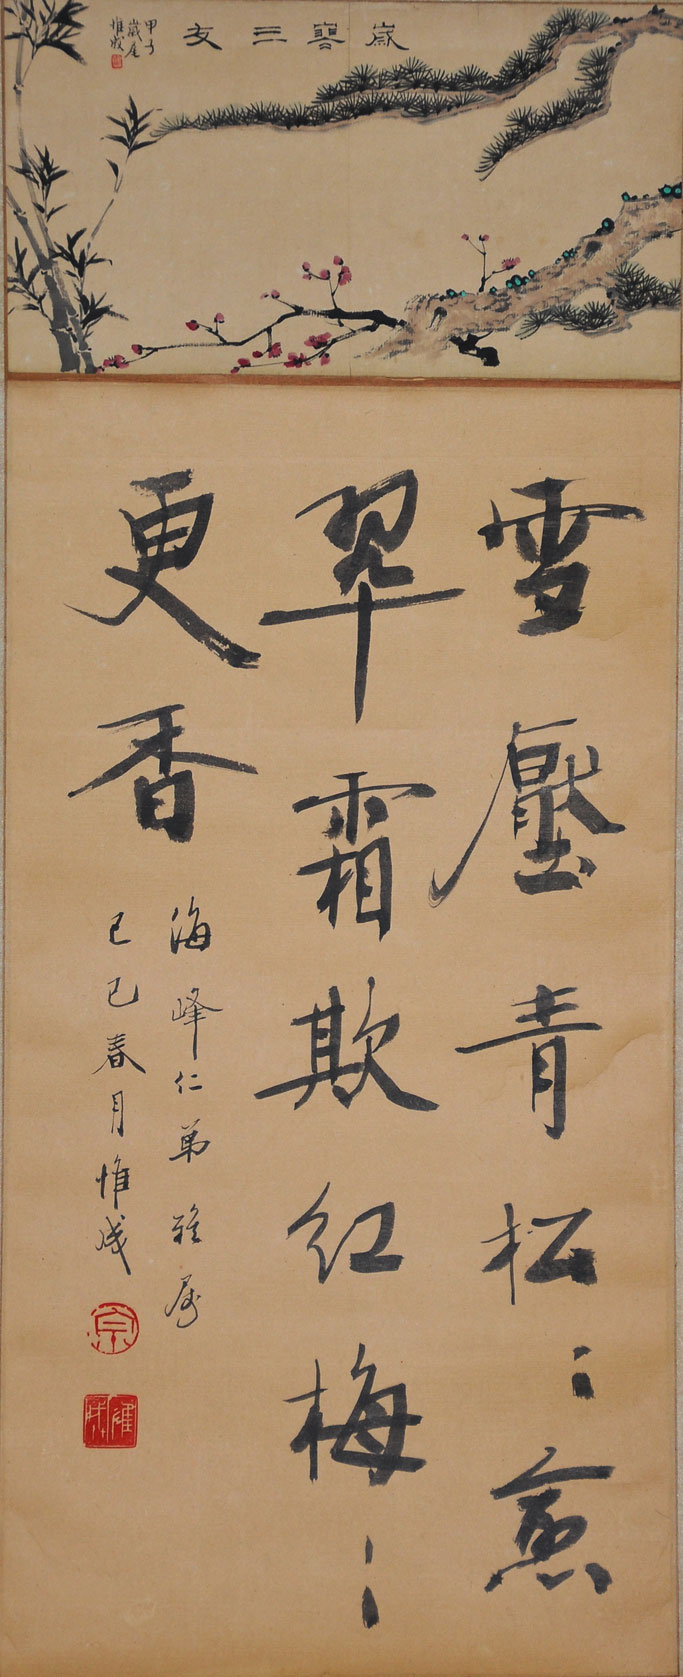 歲寒三友
甲子
歲尾
惟成
雪壓青松〻愈
翠霜欺红梅〻
更香
海峰仁弟雅属
己巳春月惟成